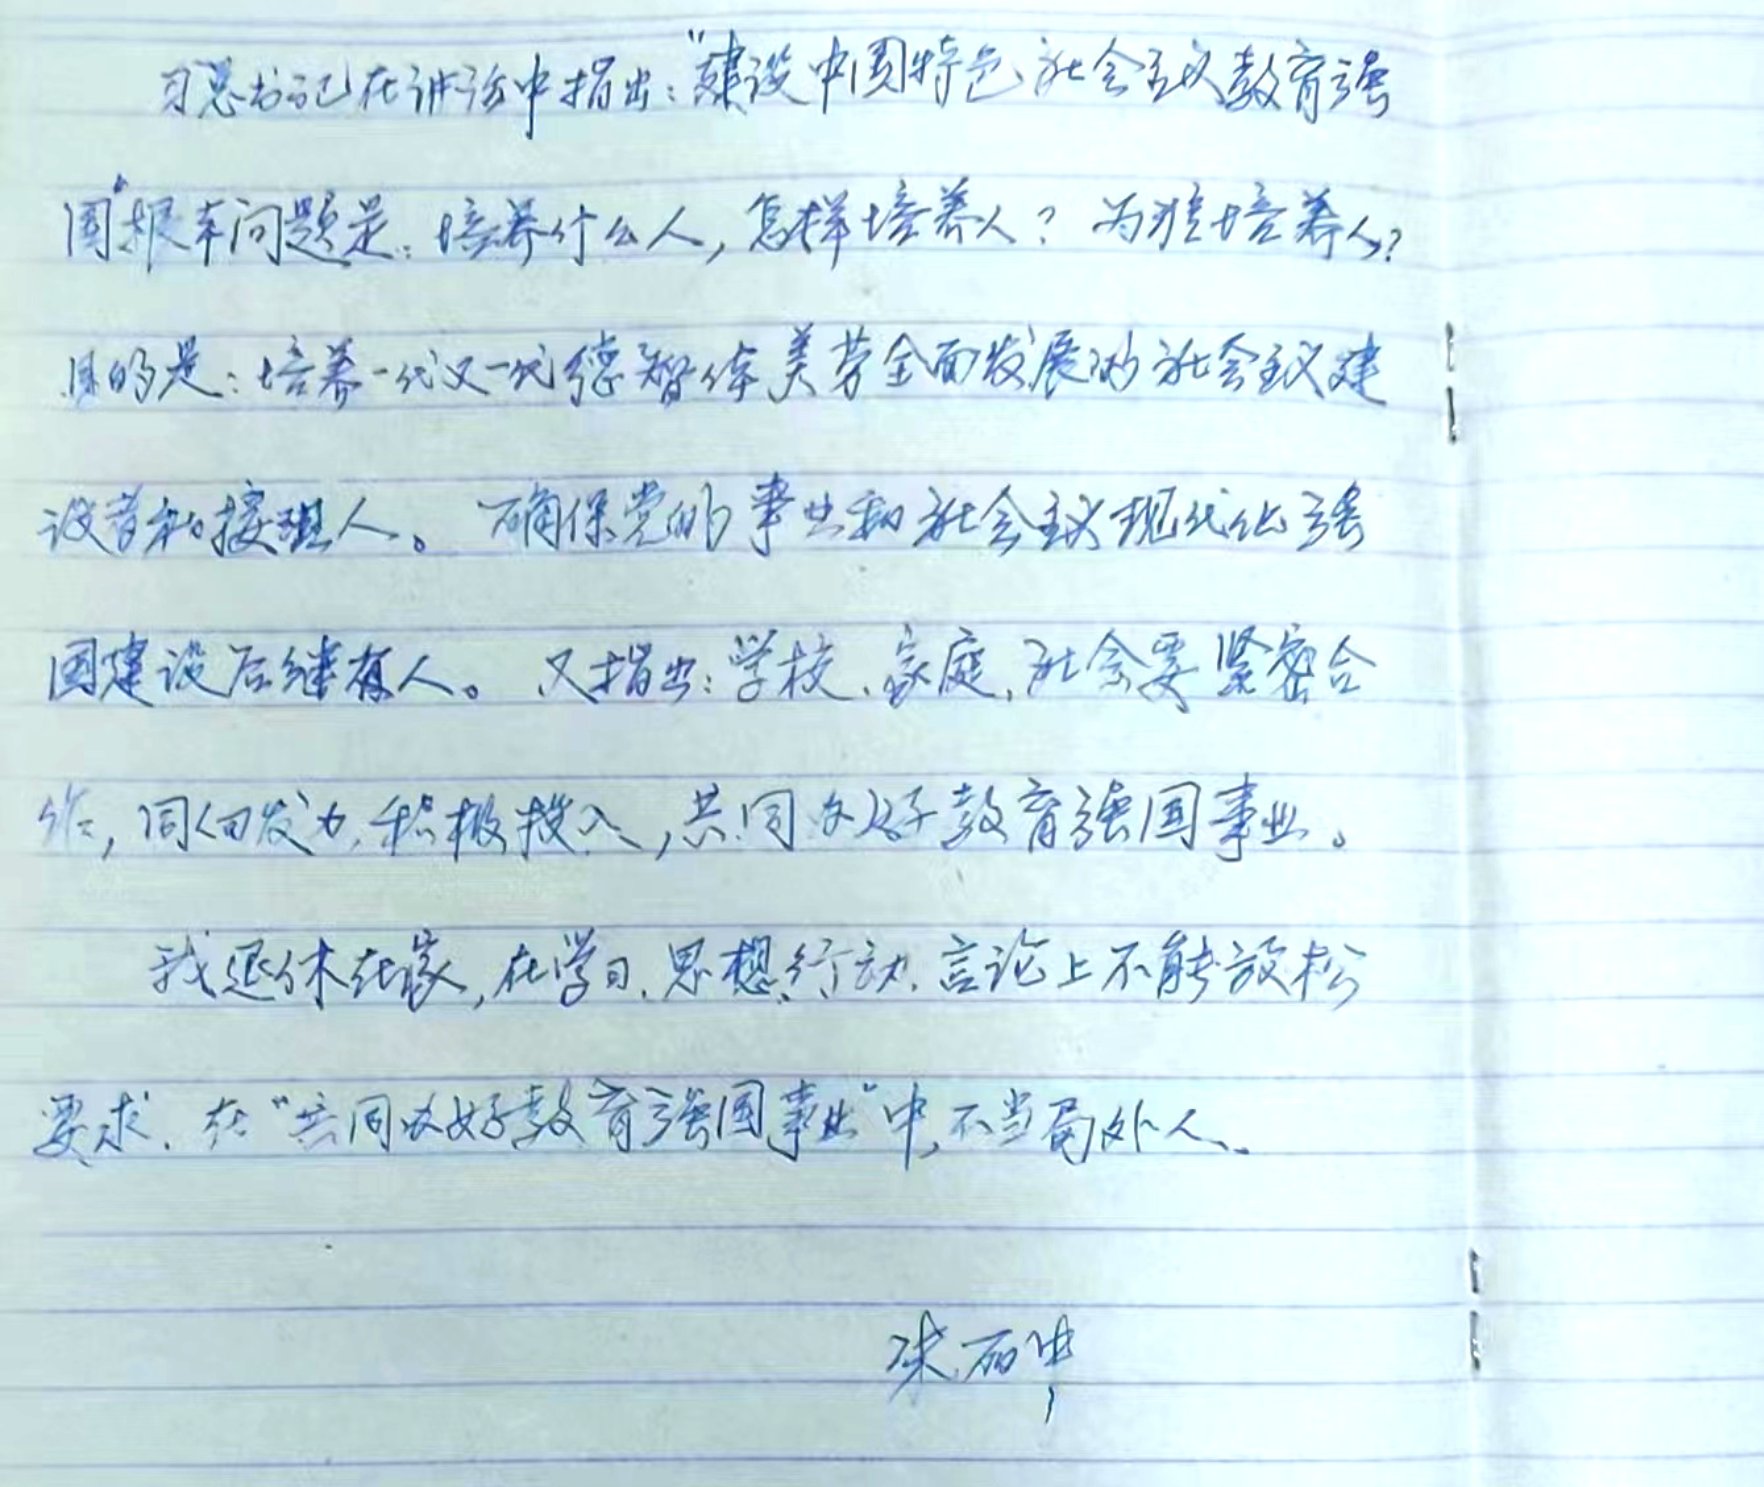 习总书记在讲话中指出："建设中国特色社会主义教育强
国"根本问题是：培养什么人，怎样培养人？为谁培养人？
目的是：培养一代又一代德智体美劳全面发展的社会主义建
设者和接班人。确保党的事业和社会主义现代化强
国建设后继有人。又指出：学校、家庭、社会要紧密合
作，同向发力，积极投入，共同办好教育强国事业。
我退休在家，在学习、思想、行动、言论上不能放松
要求，在"共同办好教育强国事业"中，不当局外人、